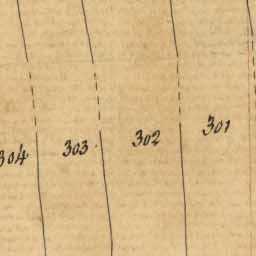 304 303 302 301